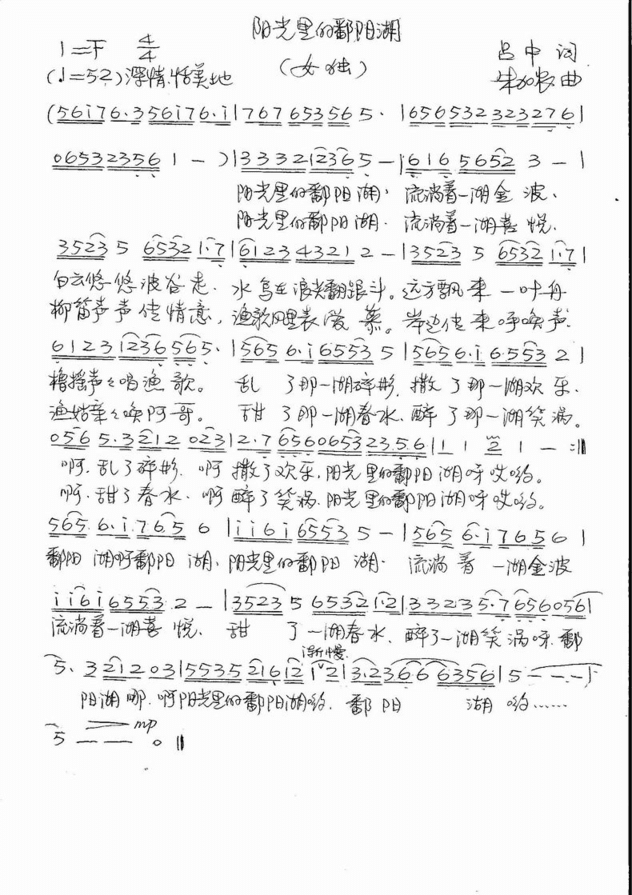 阳光里的鄱阳湖
(女独)
1=F 4/4
吕中 词
(♩=52)深情、恬美地
朱加农 曲
(56i76·356i76·i|76765356 5·|656532 323276|
06532356 1 - )|33321236 5 -|616 5652 3 -|
阳光里的鄱阳湖、流淌着一湖金波、
阳光里的鄱阳湖、流淌着一湖喜悦、
3523 5 6532 1·7|6123 4321 2 -|3523 5 6532 1·7|
白云悠悠波谷走、水鸟在浪尖翻跟斗。远方飘来一叶舟
柳笛声声传情意,渔歌里表爱慕。岸边传来呼唤声
6123 1236 565·|565 6·i 6553 5|565 6·i 6·553 2|
橹摇声声唱渔歌。乱了那一湖碎影,撒了那一湖欢乐、
渔姑幸唤阿哥。甜了那一湖春水、醉了那一湖笑涡。
0565 5·3 212 023|2·7 6560653 235·6|1 1 1 - :‖
啊、乱了碎影、啊 撒了欢乐,阳光里的鄱阳湖呀哎哟。
啊、甜了春水、啊 醉了笑涡、阳光里的鄱阳湖呀哎哟。
565 6·i 765 6|iii6i6553 5 -|565 6·i 765 6|
鄱阳湖啊鄱阳湖、阳光里的鄱阳湖、流淌着一湖金波
ii6i6553 2 -|3523 5 6532 1·2|33235·7656056|
流淌着一湖喜悦、甜了一湖春水、醉了一湖笑涡呀、鄱
渐慢
5· 3 212 03|5535 216 12 12|3·2366 6356|5 - - -|
阳湖哪、啊阳光里的鄱阳湖哟、鄱阳湖哟……
mp
5 - - 0‖